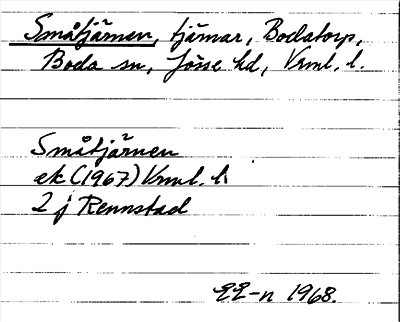 Småtjärnen, tjärnar, Bodatorp,
Boda sn, Jösse hd, Vrml. l.
Småtjärnen
ek (1967) Vrml. l.
2 j Rennstad
EE-n 1968.